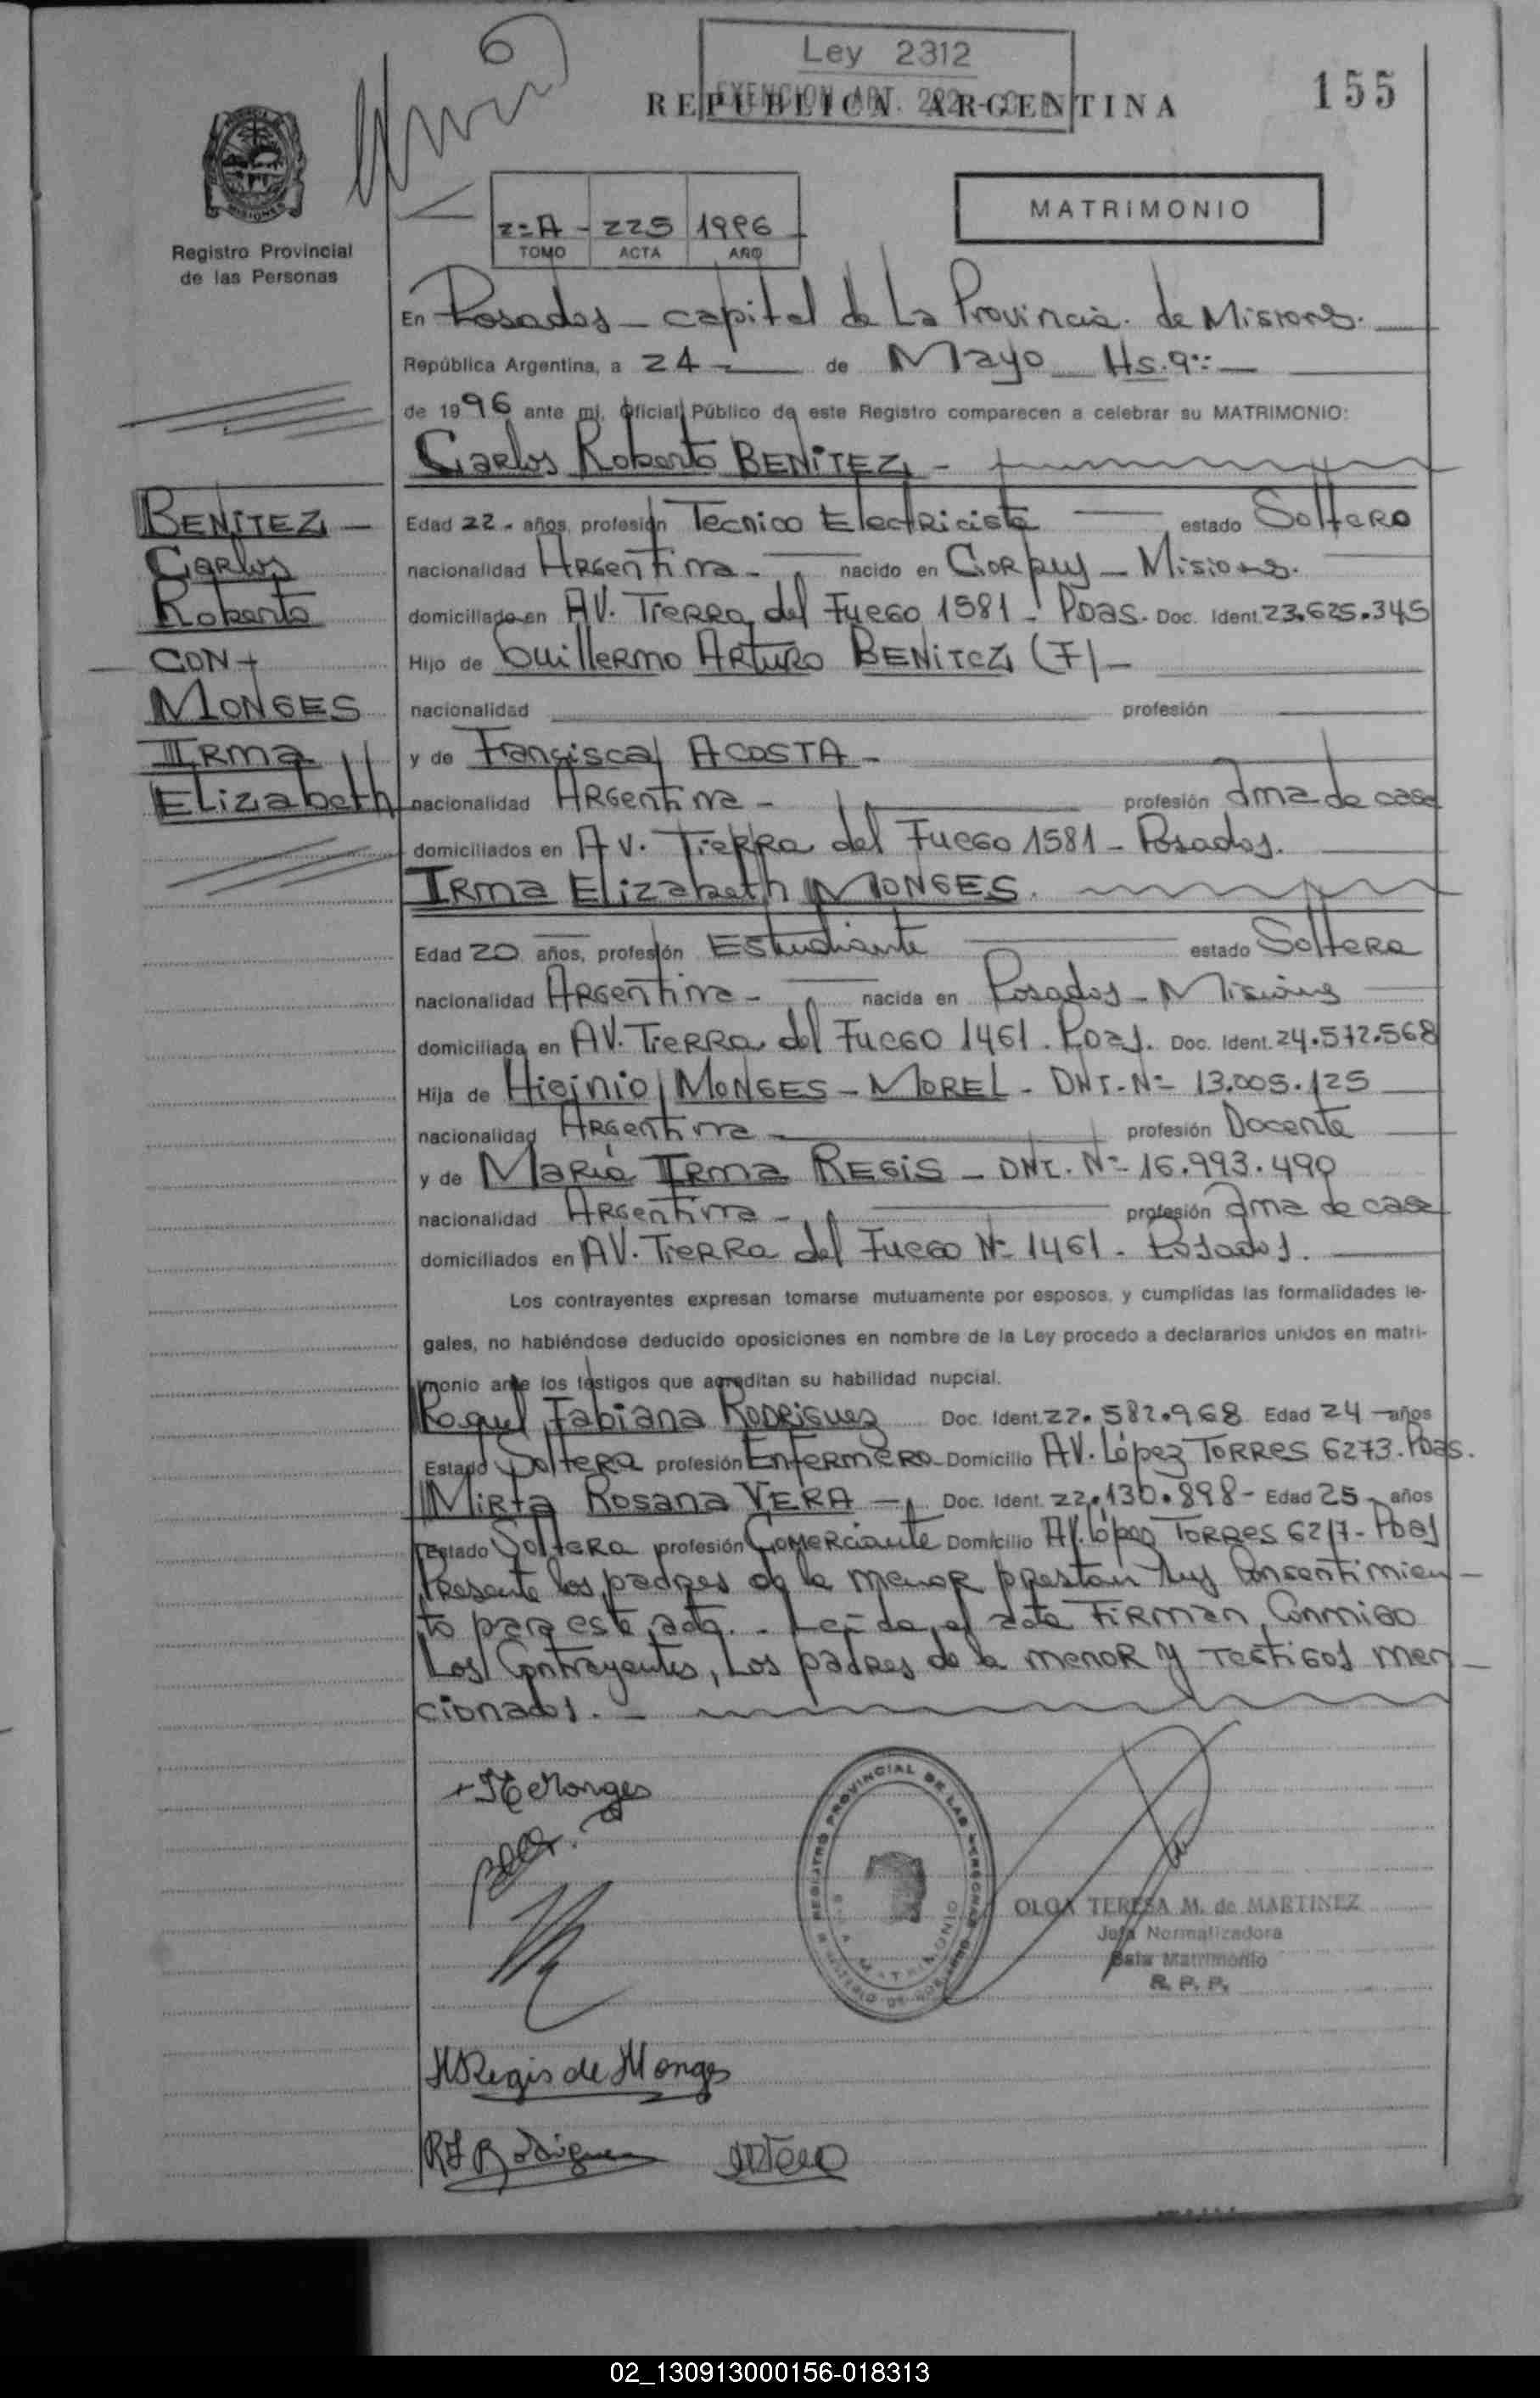 6
Ley 2312
EXENCION ART. 292
REPUBLICA ARGENTINA
155
MISIONES
Registro Provincial
de las Personas
2=A - 225 1996
TOMO ACTA AÑO
MATRIMONIO
En Posadas - capital de La Provincia de Misiones.
República Argentina, a 24 de Mayo Hs. 9
de 1996 ante mí, Oficial Público de este Registro comparecen a celebrar su MATRIMONIO:
Carlos Roberto BENITEZ -
BENITEZ -
Carlos
Roberto
CON
MONGES
IRMA
Elizabeth
Edad 22 - años, profesión Tecnico Electricista estado Soltero
nacionalidad Argentina - nacido en Corpus - Misiones.
domiciliado en AV. Tierra del Fuego 1581 - Pdas. Doc. Ident. 23.625.345
Hijo de Guillermo Arturo BENITEZ (F) -
nacionalidad profesión
y de Francisca ACOSTA -
nacionalidad Argentina - profesión ama de casa
domiciliados en AV. Tierra del Fuego 1581 - Posadas.
Irma Elizabeth MONGES.
Edad 20 años, profesión Estudiante estado Soltera
nacionalidad Argentina - nacida en Posadas - Misiones
domiciliada en AV. Tierra del Fuego 1461. Pdas. Doc. Ident. 24.572.568
Hija de Higinio MONGES - MOREL - DNI. Nº 13.005.125
nacionalidad Argentina - profesión Docente
y de Maria Irma REGIS - DNI. Nº 16.993.490
nacionalidad Argentina - profesión ama de casa
domiciliados en AV. Tierra del Fuego Nº 1461 - Posadas.
Los contrayentes expresan tomarse mutuamente por esposos, y cumplidas las formalidades le-
gales, no habiéndose deducido oposiciones en nombre de la Ley procedo a declararlos unidos en matri-
monio ante los testigos que acreditan su habilidad nupcial.
Raquel Fabiana RODRIGUEZ Doc. Ident. 22.582.968 Edad 24 años
Estado Soltera profesión Enfermero - Domicilio AV. López Torres 6273. Pdas.
Mirta Rosana VERA - Doc. Ident. 22.130.898 - Edad 25 - años
Estado Soltera profesión Comerciante Domicilio AV. López Torres 6217 - Pdas
Presente los padres de la menor prestan sus Consentimien-
to para este acto. - Leída el acta Firman Conmigo
Los Contrayentes, Los padres de la menor y Testigos men-
cionados. -
Monges
REGISTRO PROVINCIAL DE LAS PERSONAS
MATRIMONIO
OLGA TERESA M. de MARTINEZ
Jefa Normalizadora
Sala Matrimonio
R. P. P.
Regis de Monges
RF Rodriguez
02_130913000156-018313